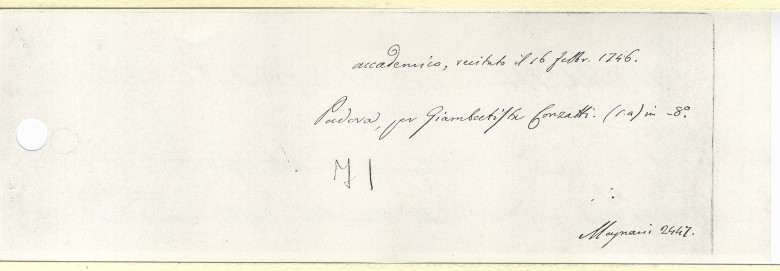 accademico, recitato il 16 febbr. 1746.
Padova, per Giambatista Conzatti. (s.a) in -8º.
M |
Magnani 2447.